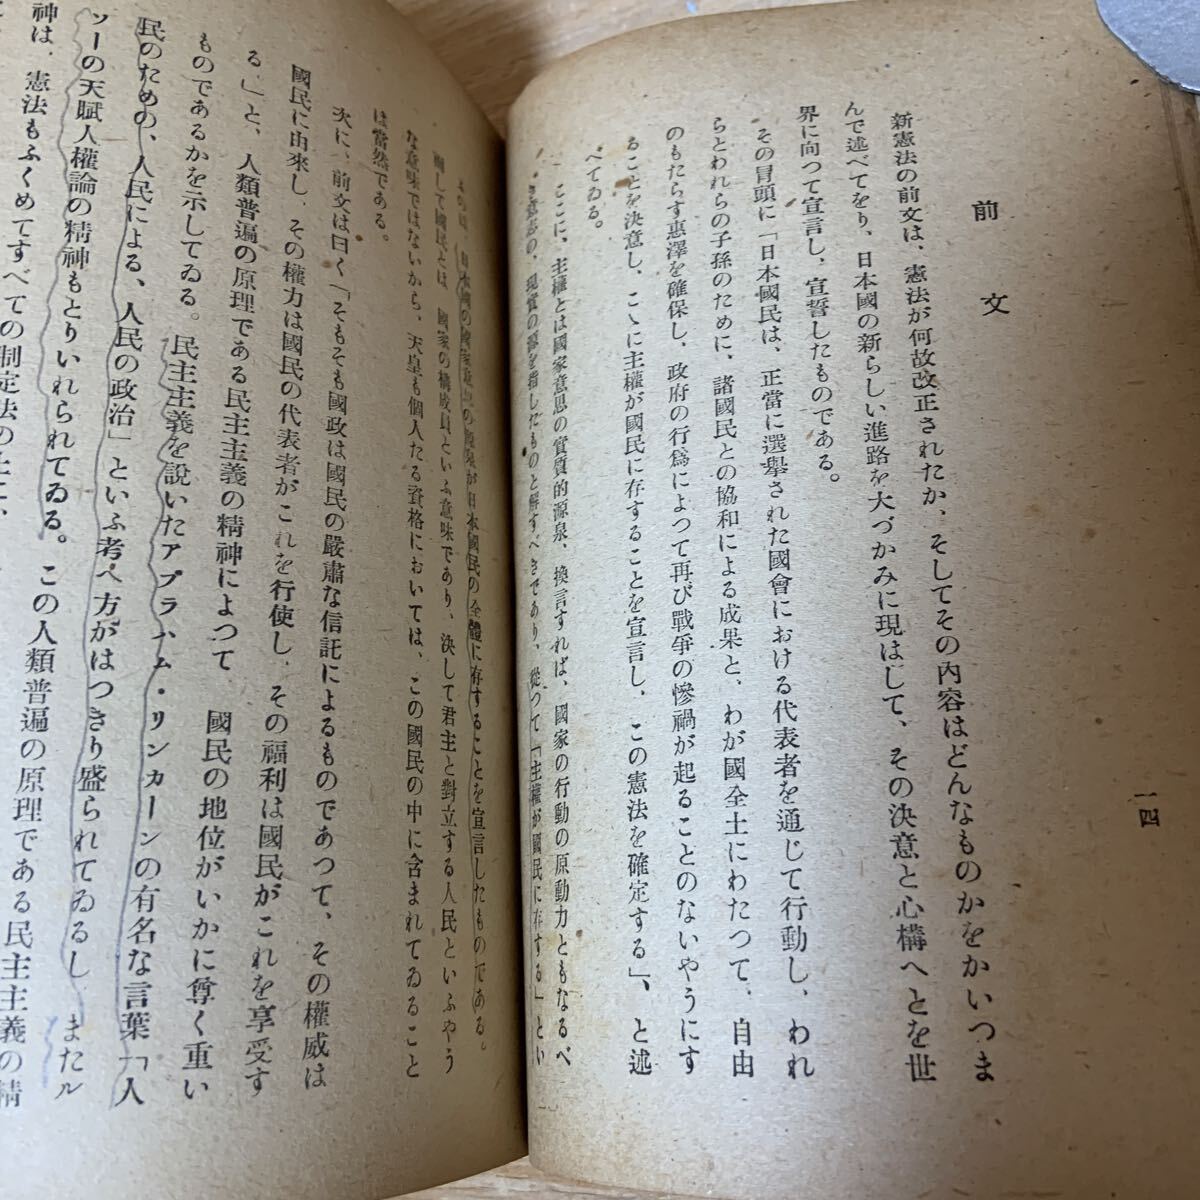 一四
前文
新憲法の前文は、憲法が何故改正されたか、そしてその内容はどんなものかをかいつま
んで述べてをり、日本國の新らしい進路を大づかみに現はして、その決意と心構へとを世
界に向つて宣言し、宣誓したものである。
その冒頭に「日本國民は、正當に選擧された國會における代表者を通じて行動し、われ
らとわれらの子孫のために、諸國民との協和による成果と、わが國全土にわたつて、自由
のもたらす惠澤を確保し、政府の行爲によつて再び戰爭の慘禍が起ることのないやうにす
ることを決意し、こゝに主權が國民に存することを宣言し、この憲法を確定する」、と述
べてゐる。
ここに、主權とは國家意思の實質的源泉、換言すれば、國家の行動の原動力ともなるべ
き意志の、現實の源を指したものと解すべきであり、從つて「主權が國民に存する」とい
日本國の國家意思の源泉が日本國民の全體に存することを宣言したものである。
而して國民とは、國家の構成員といふ意味であり、決して君主と對立する人民といふやう
な意味ではないから、天皇も個人たる資格においては、この國民の中に含まれてゐること
は當然である。
次に、前文は曰く「そもそも國政は國民の嚴肅な信託によるものであつて、その權威は
國民に由來し、その權力は國民の代表者がこれを行使し、その福利は國民がこれを享受す
る、」と、人類普遍の原理である民主主義の精神によつて國民の地位がいかに尊く重い
ものであるかを示してゐる。民主主義を說いたアブラハム・リンカーンの有名な言葉「人
民のための、人民による、人民の政治」といふ考へ方がはつきり盛られてゐるし、またル
ソーの天賦人權論の精神もとりいれられてゐる。この人類普遍の原理である民主主義の精
神は、憲法もふくめてすべての制定法の上に、